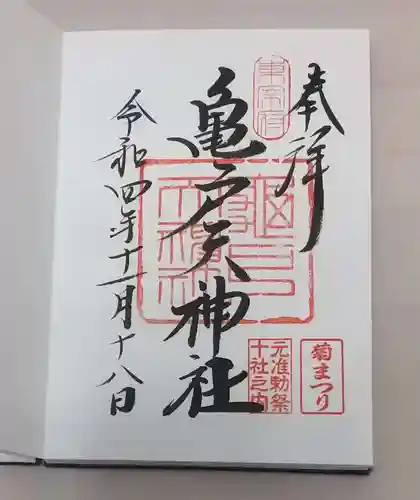 奉拝
東宰府
亀戸天神社
令和四年十一月十八日
元准勅祭
十社之内
菊まつり